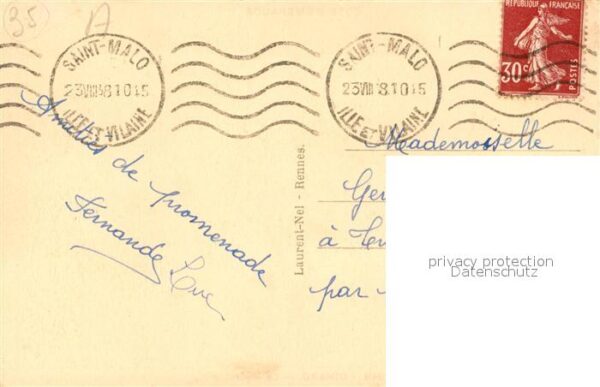 35
A
SAINT-MALO
23 VIII 38 1015
ILLE ET VILAINE
SAINT-MALO
23 VIII 8.1015
ILLE ET VILAINE
REPUBLIQUE FRANÇAISE
30c
POSTES
Amitiés de promenade
Fernande
Laurent-Nel - Rennes.
Mademoiselle
Ger
à
par
privacy protection
Datenschutz